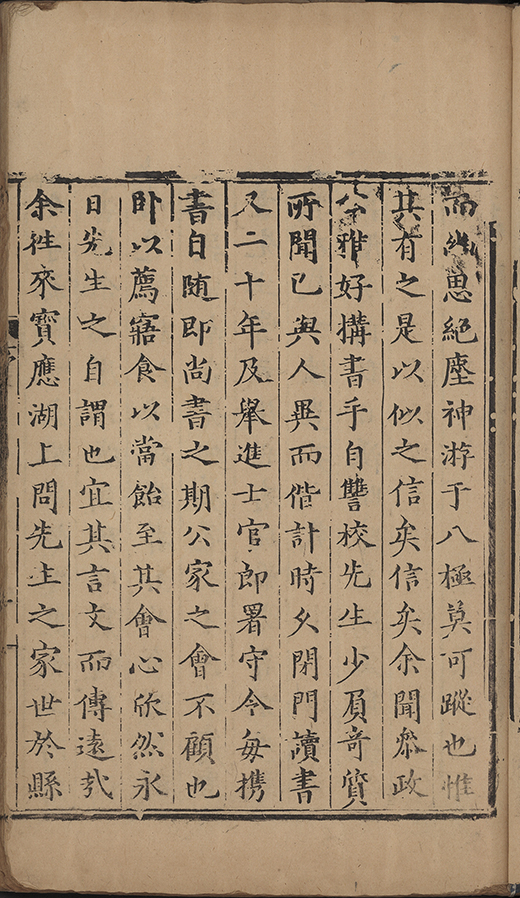 而幽思絕塵神游于八極莫可蹤也惟
其有之是以似之信矣信矣余聞叅政
公雅好搆書手自讐校先生少負竒質
所聞已與人異而偕計時久閉門讀書
又二十年及舉進士官郎署守令每携
書自随即尚書之期公家之會不顧也
卧以薦寤食以當飴至其會心欣然永
日先生之自謂也宜其言文而傳遠哉
余徃來寶應湖上問先生之家世於縣